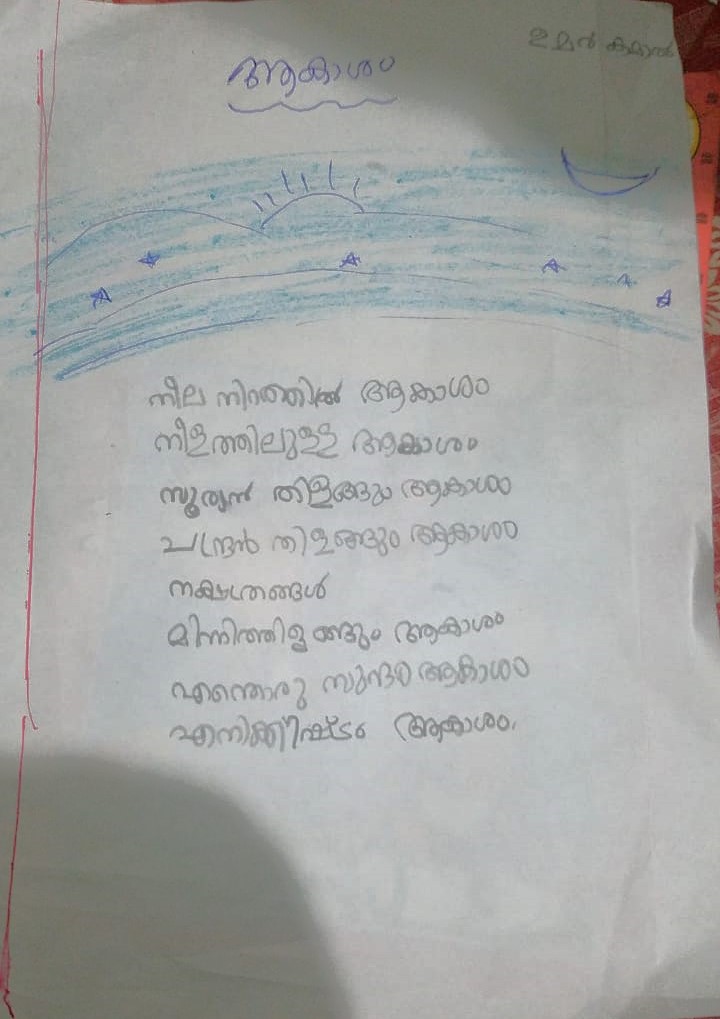 ഉമർ കമാൽ
ആകാശം
നീല നിറത്തിൽ ആകാശം
നീളത്തിലുള്ള ആകാശം
സൂര്യൻ തിളങ്ങും ആകാശം
ചന്ദ്രൻ തിളങ്ങും ആകാശം
നക്ഷത്രങ്ങൾ
മിന്നിത്തിളങ്ങും ആകാശം
എന്തൊരു സുന്ദര ആകാശം
എനിക്കീഷ്ടം ആകാശം.